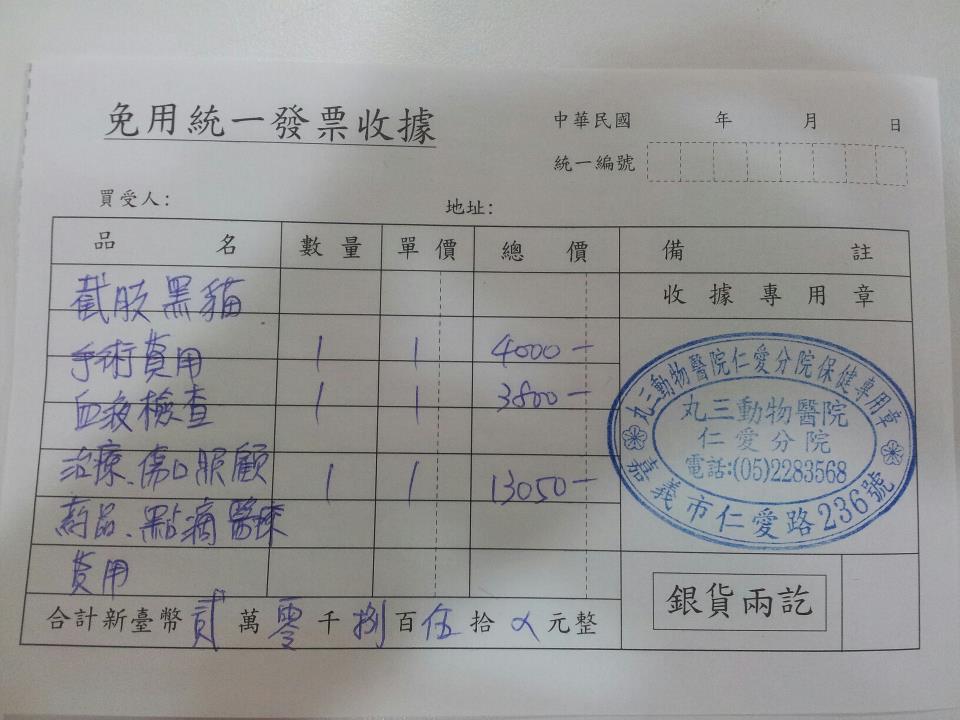 免用統一發票收據
中華民國 年 月 日
統一編號
買受人:
地址:
品名 數量 單價 總價 備註
收據專用章
截肢黑貓
手術費用 1 1 4000-
血液檢查 1 1 3800-
治療、傷口照顧 1 1 13050-
藥品、點滴醫療
費用
合計新臺幣貳萬零千捌百伍拾 元整
銀貨兩訖
丸三動物醫院仁愛分院保健專用章
丸三動物醫院
仁愛分院
電話:(05)2283568
嘉義市仁愛路236號